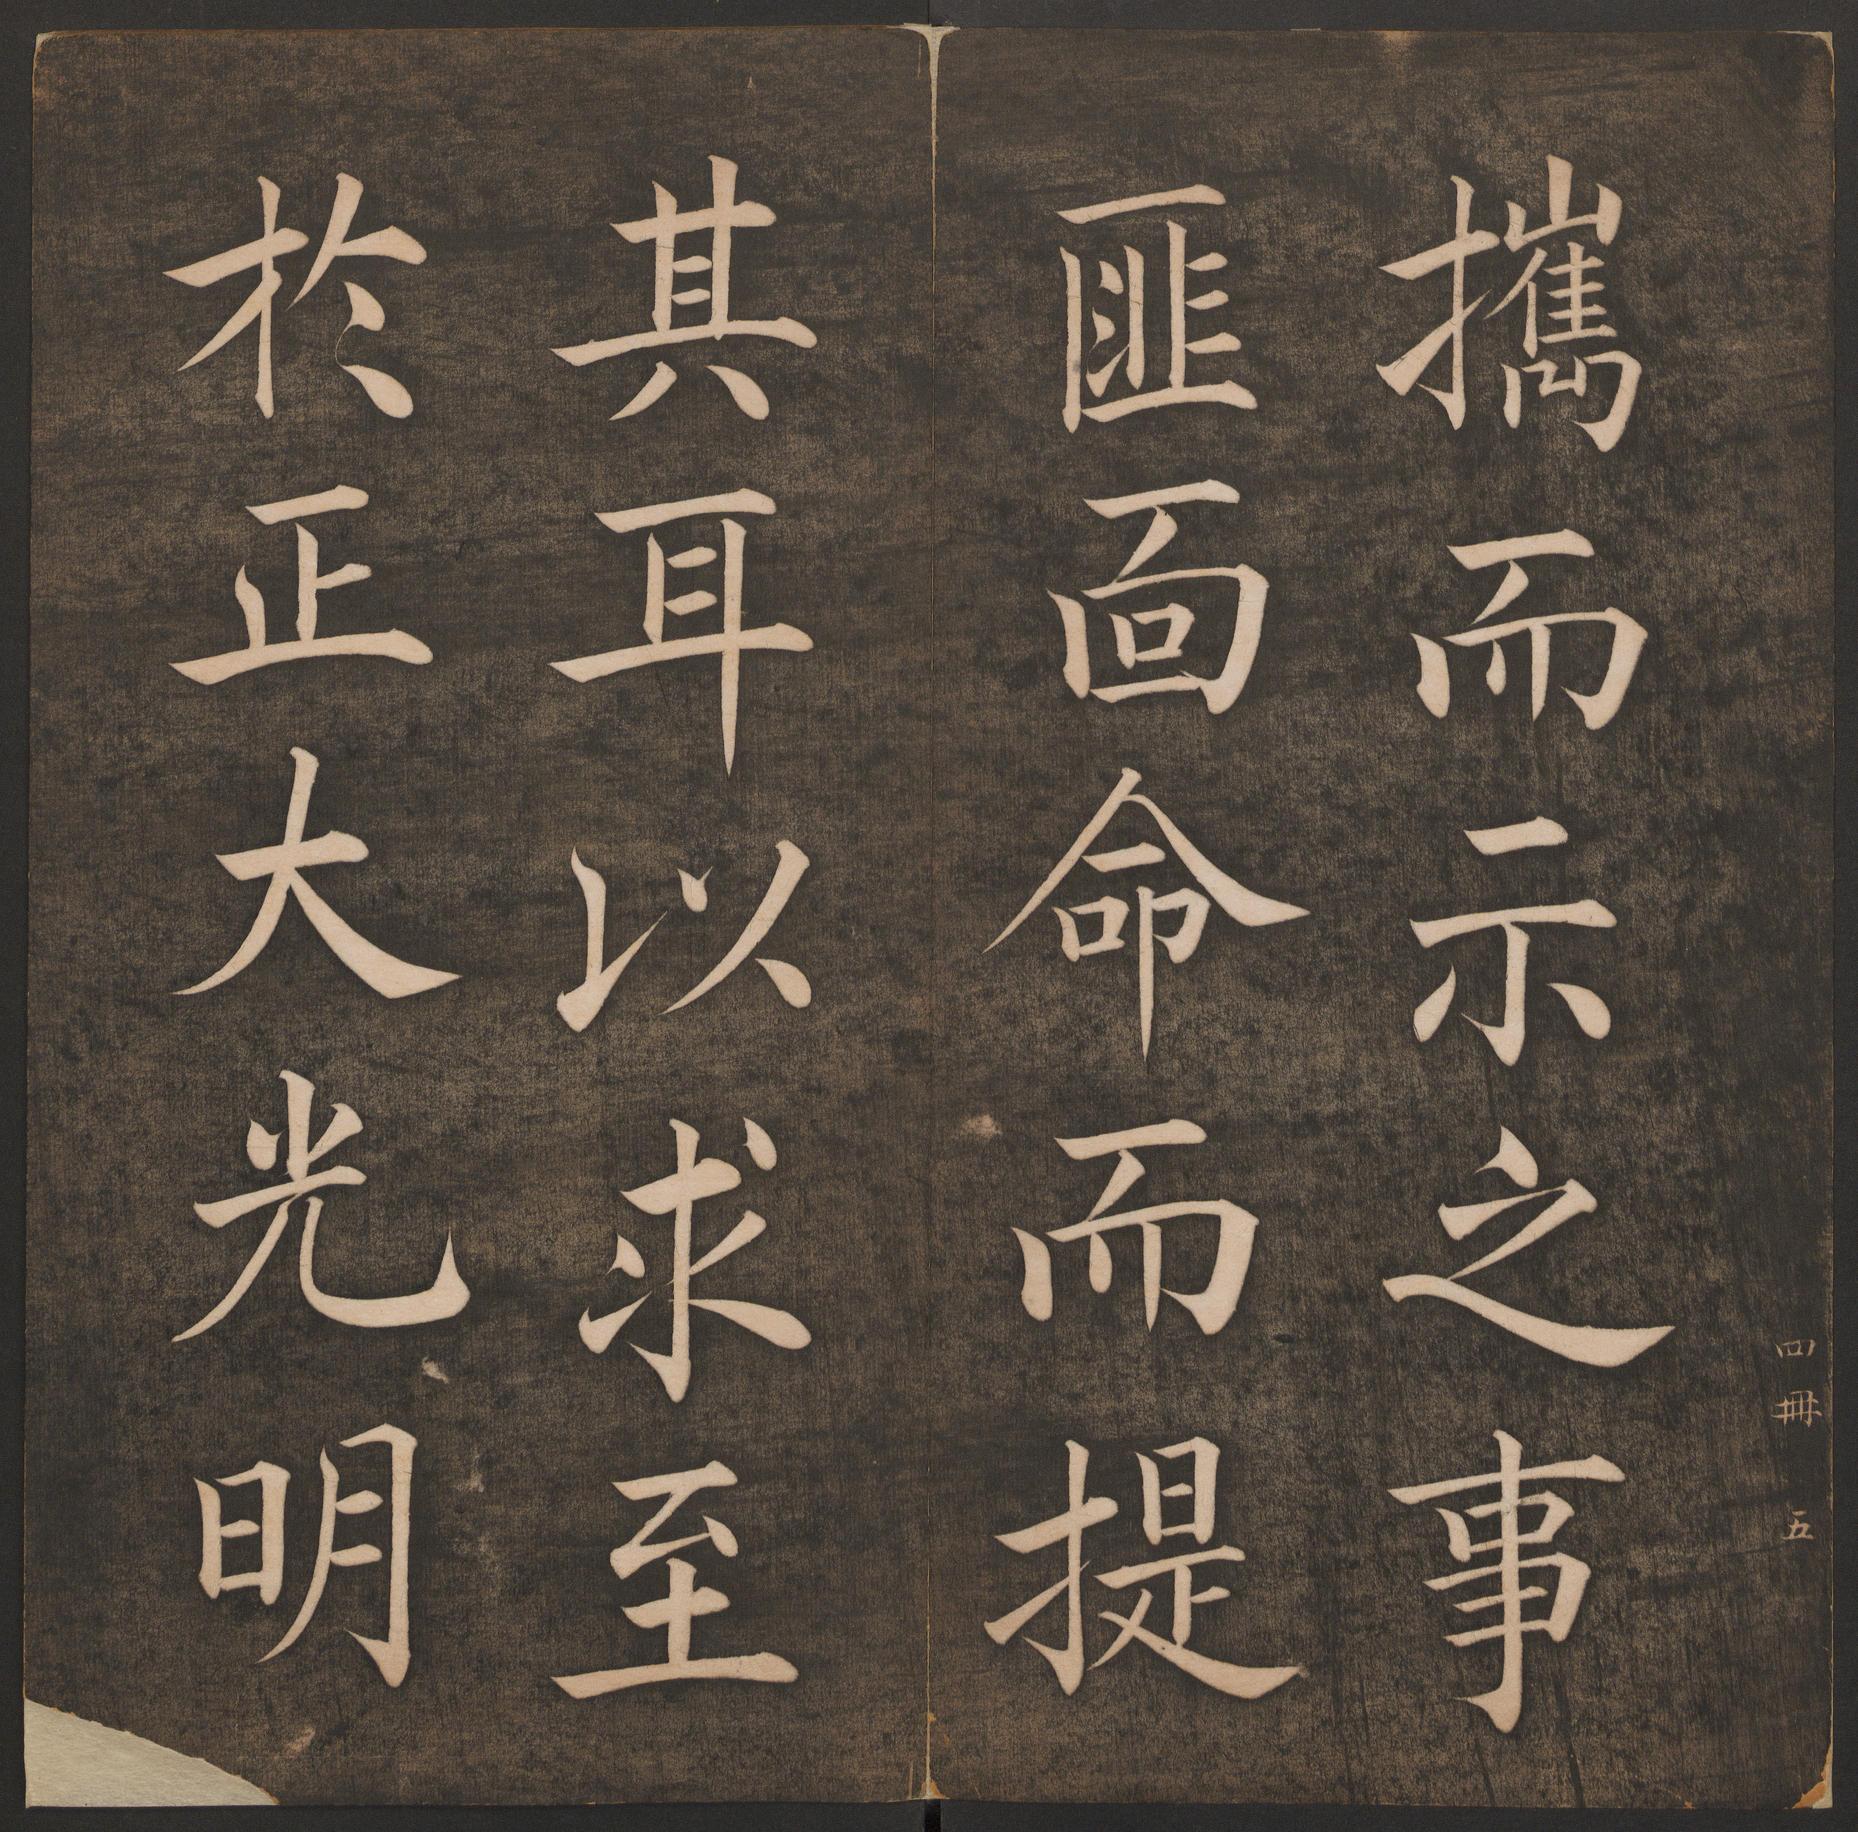 四冊 五
攜而示之事
匪靣命而提
其耳以求至
於正大光明